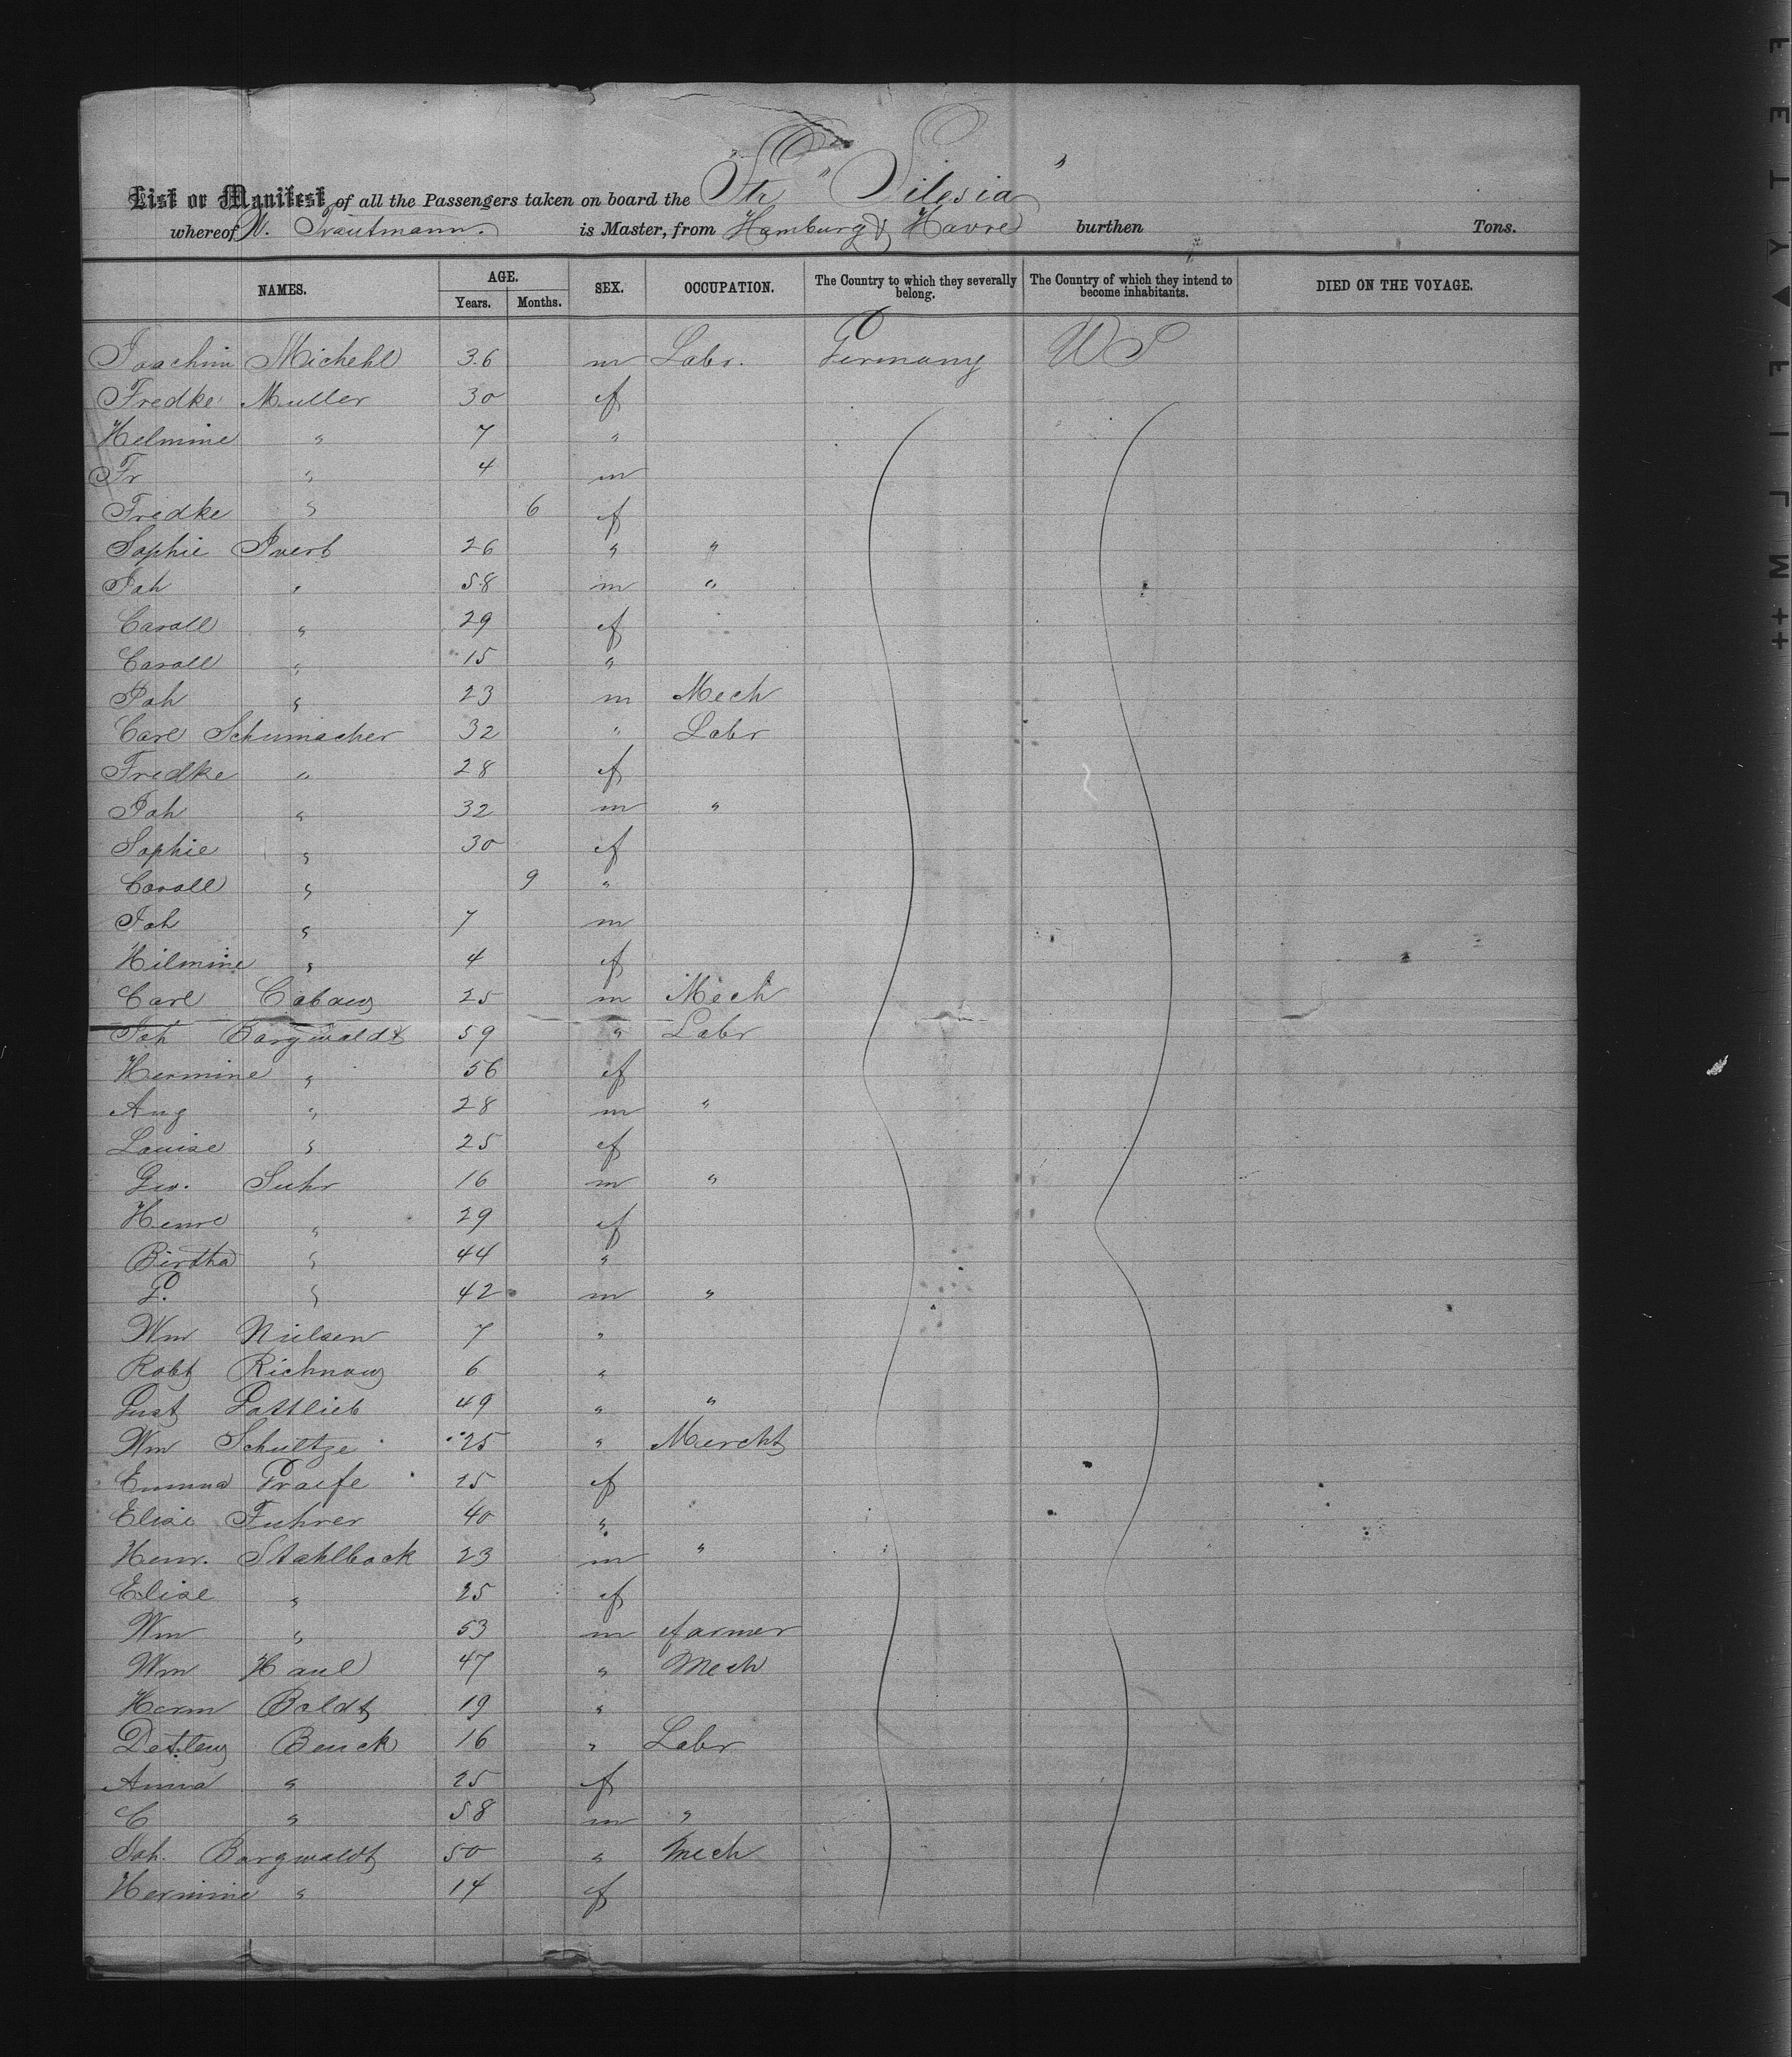 List or Manifest of all the Passengers taken on board the Str "Silesia"
whereof N. Trautmann. is Master, from Hamburg & Havre burthen Tons.
NAMES. AGE. Years. Months. SEX. OCCUPATION. The Country to which they severally belong. The Country of which they intend to become inhabitants. DIED ON THE VOYAGE.
Joachim Michehl 36 m Labr. Germany US
Fredke Muller 30 f
Helmine " 7 "
Fr " 4 m
Fredke " 6 f
Sophie Ivert 26 " "
Joh " 58 m "
Caroll " 29 f
Caroll " 15 "
Joh " 23 m Mech
Carl Schumacher 32 " Labr
Fredke " 28 f
Joh " 32 m "
Sophie " 30 f
Caroll " 9 "
Joh " 7 m
Hilmine " 4 f
Carl Cabaus 25 m Mech
Joh Borgwaldt 59 " Labr
Hermine " 56 f
Aug " 28 m "
Louise " 25 f
Geo. Suhr 16 m "
Henre " 29 f
Birtha " 44 "
G. " 42 m "
Wm Nielsen 7 "
Robt Richnow 6 "
Gust Gottlieb 49 " "
Wm Schultze 25 " Mercht
Emma Graefe 25 f
Elise Fuhrer 40 "
Henr. Stahlbock 23 m "
Elise " 25 f
Wm " 53 m farmer
Wm Haul 47 " Mech
Herm Boldt 19 "
Detlev Benck 16 " Labr
Anna " 25 f
C " 58 m "
Joh. Borgwaldt 50 " Mech
Hermine " 14 f